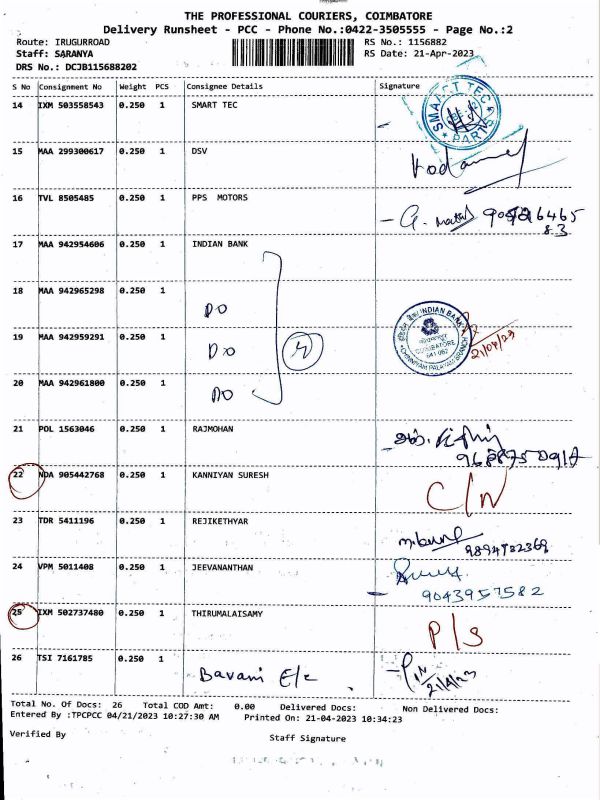 THE PROFESSIONAL COURIERS, COIMBATORE
Delivery Runsheet - PCC - Phone No.:0422-3505555 - Page No.:2
Route: IRUGURROAD RS No.: 1156882
Staff: SARANYA RS Date: 21-Apr-2023
DRS No.: DCJB115688202
S No Consignment No Weight PCS Consignee Details Signature
14 IXM 503558543 0.250 1 SMART TEC
SMART TEC PARTS
15 MAA 299300617 0.250 1 DSV
16 TVL 8505485 0.250 1 PPS MOTORS
17 MAA 942954606 0.250 1 INDIAN BANK
18 MAA 942965298 0.250 1 DO
19 MAA 942959291 0.250 1 DO
INDIAN BANK COIMBATORE 641 062 CHINNIYAM PALAYAM BRANCH
21/04/23
20 MAA 942961800 0.250 1 DO
21 POL 1563046 0.250 1 RAJMOHAN
22 NDA 905442768 0.250 1 KANNIYAN SURESH C/N
23 TDR 5411196 0.250 1 REJIKETHYAR
24 VPM 5011408 0.250 1 JEEVANANTHAN
9043957582
25 IXM 502737480 0.250 1 THIRUMALAISAMY P/S
26 TSI 7161785 0.250 1 Bavani E/c 21/4/23
Total No. Of Docs: 26 Total COD Amt: 0.00 Delivered Docs: Non Delivered Docs:
Entered By :TPCPCC 04/21/2023 10:27:30 AM Printed On: 21-04-2023 10:34:23
Verified By Staff Signature